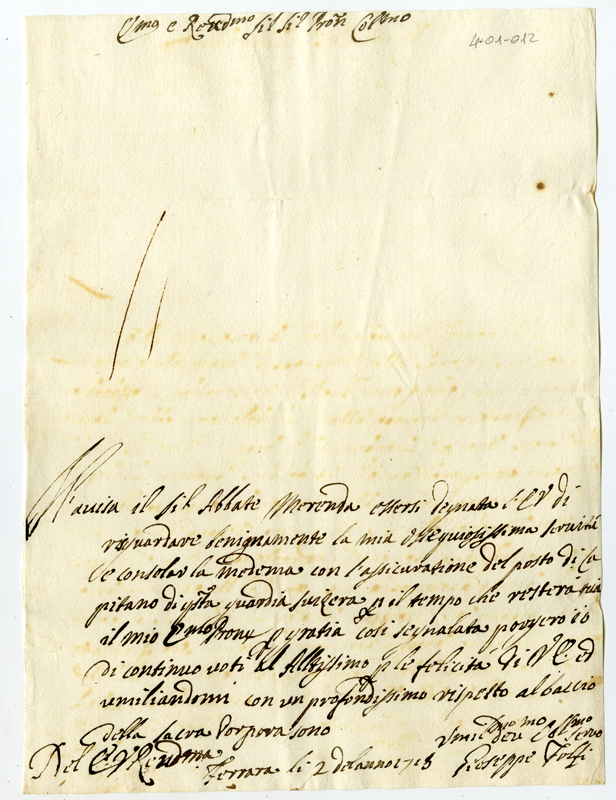 Em.º e Reud.mo Sig Sig Pron Col.mo
401-012
M'auisa il Sig.r Abbate Merenda essersi degnata l'E V di
risguardare benignamente la mia ossequiosissima seruitù
e consolar la medema con l'assicuratione del posto di Ca
pitano di q.sta guardia suizera p il tempo che resterà
il mio Em.o Prone p gratia così segnalata porgerò io
di continuo voti al Altissimo p le felicità di V E. ed
umiliandomi con un profondissimo rispetto al baccio
della sacra Porpora sono
Del E V Reud.ma
Ferrara li 2 del anno 1718
Umil.mo Deu.mo Oss.mo Seruo
Gioseppe Tolfi